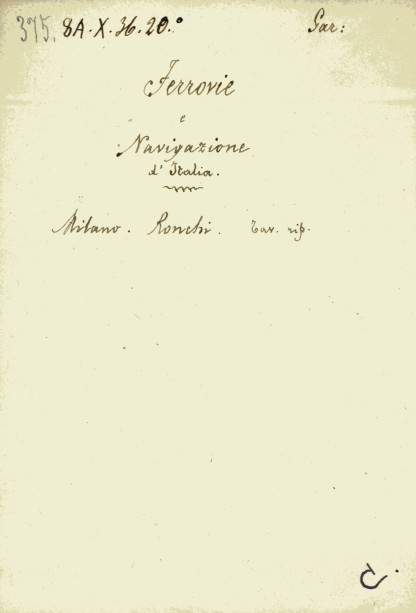 375. 8A.X.36.20.° Gar:
Ferrovie
e
Navigazione
d'Italia.
Milano. Ronchi. Tav. rip.